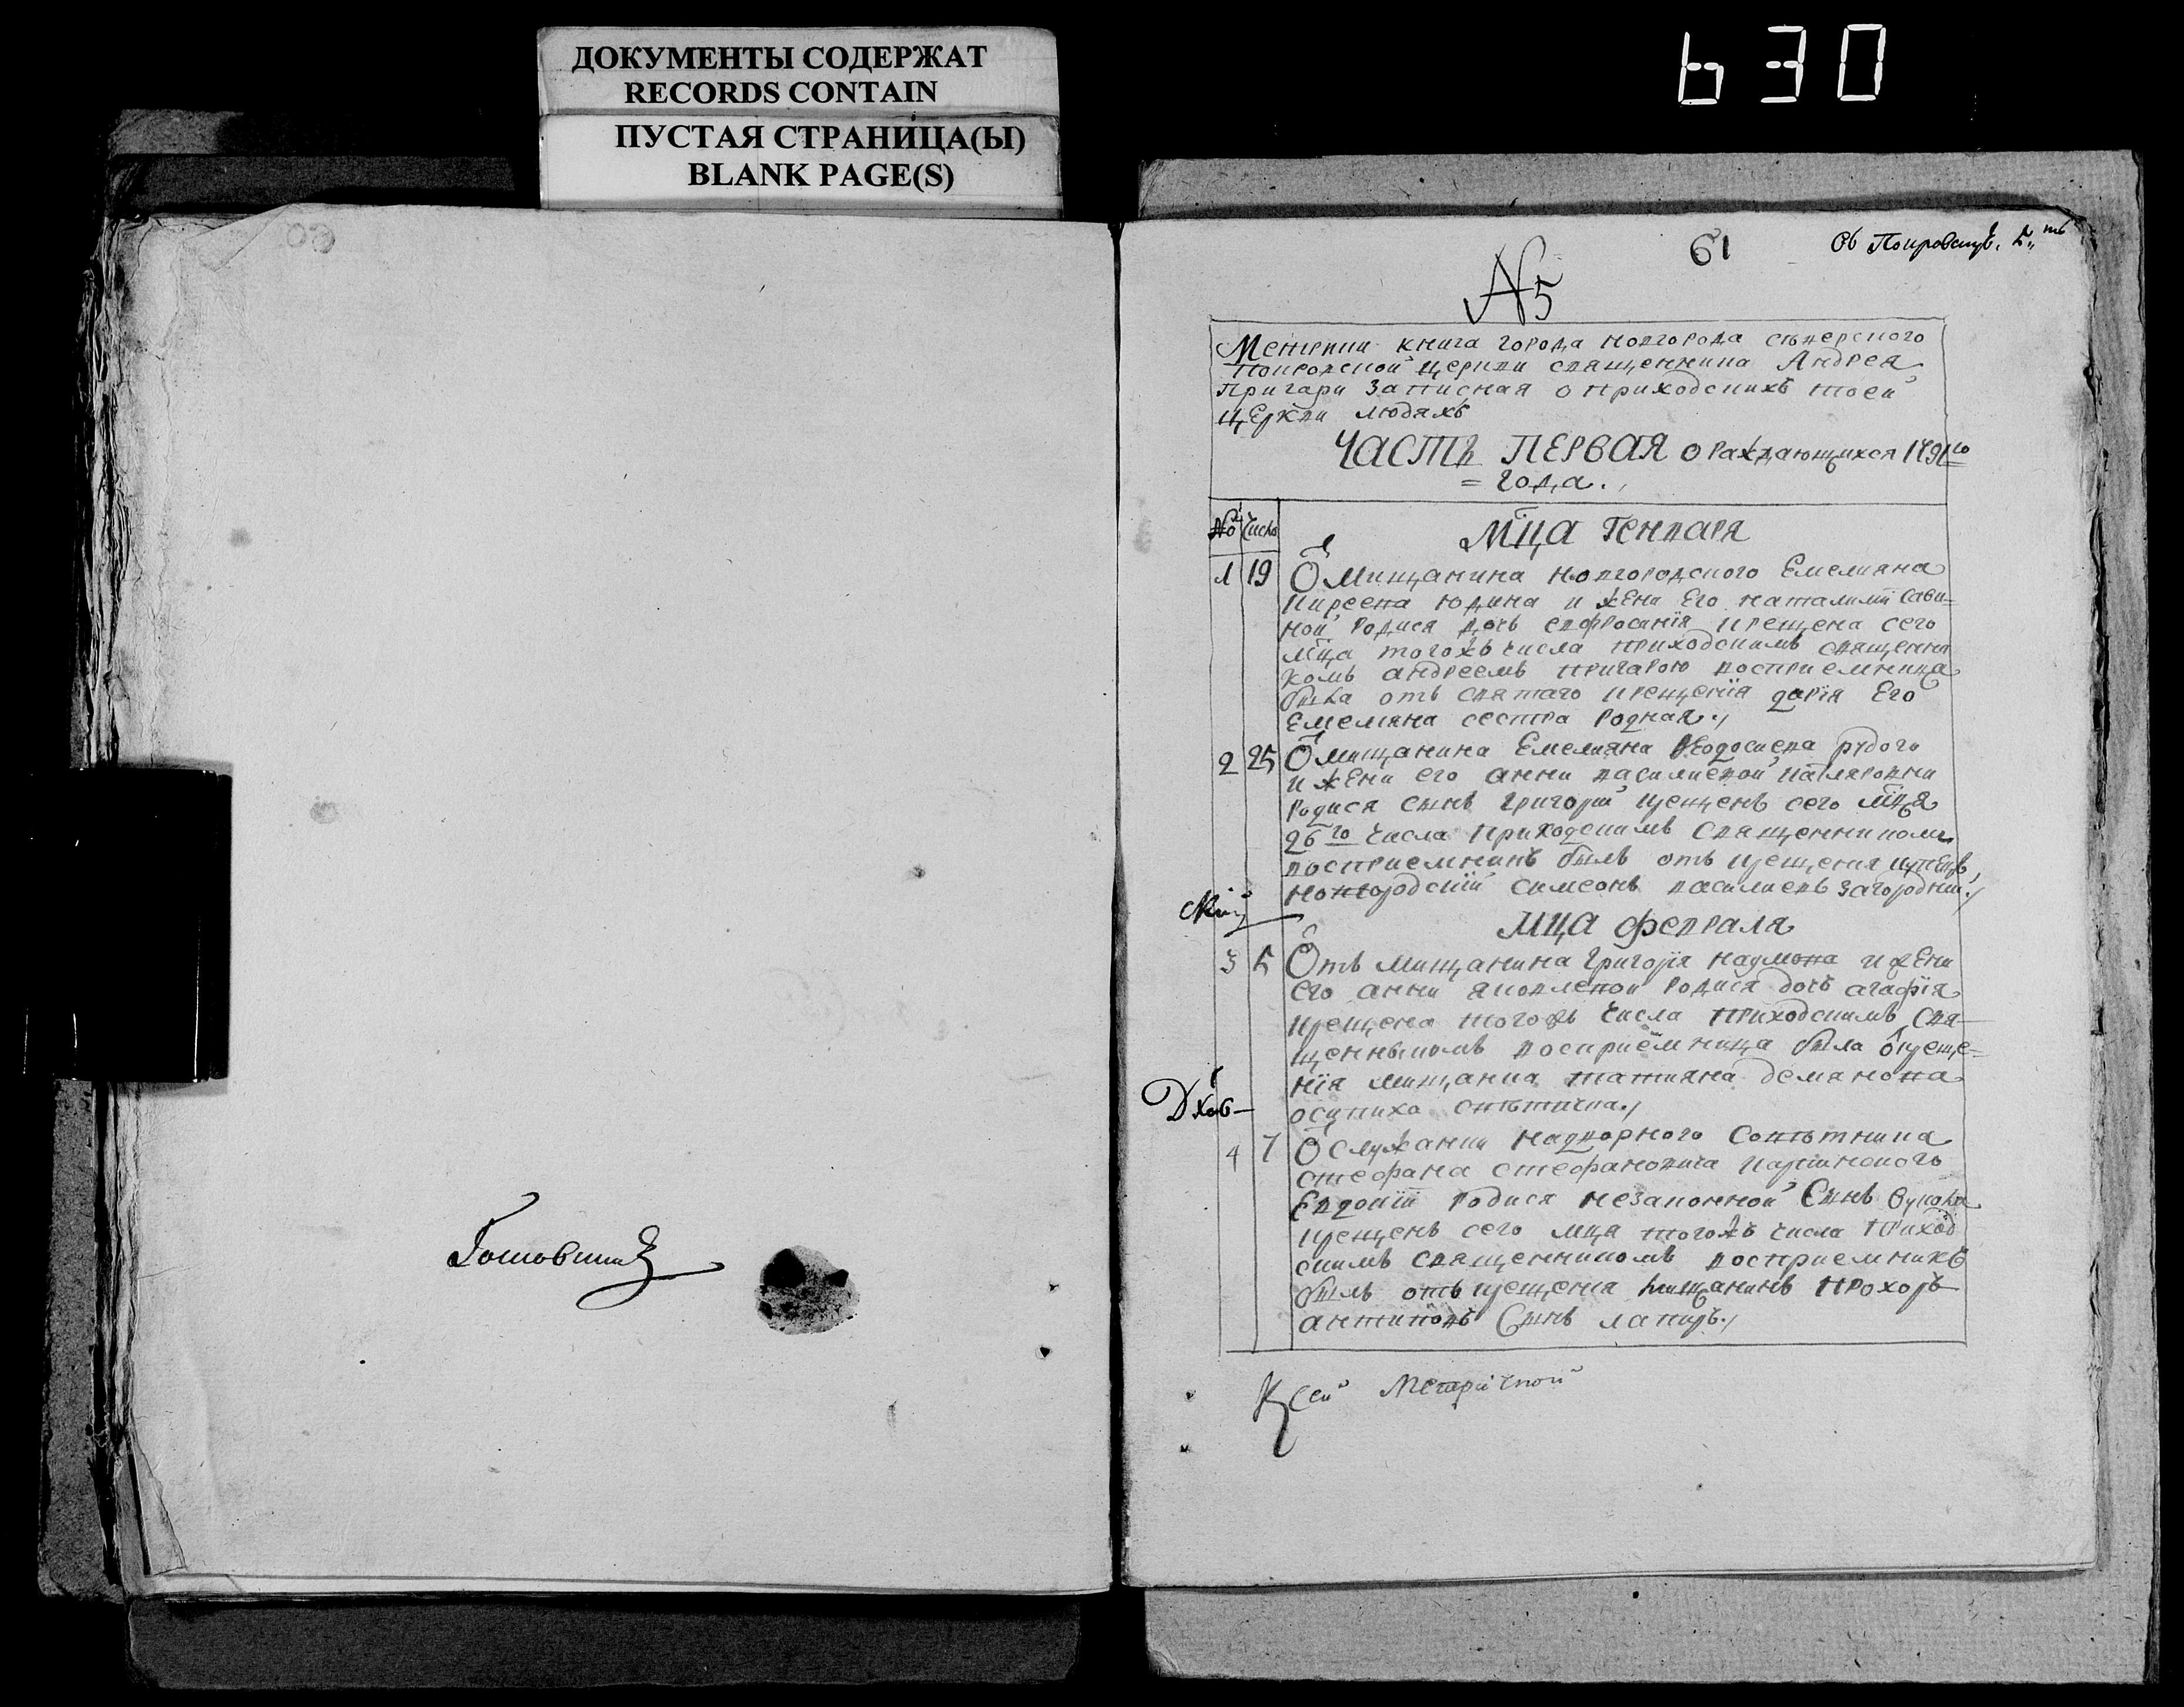 ДОКУМЕНТЫ СОДЕРЖАТ
RECORDS CONTAIN
ПУСТАЯ СТРАНИЦА(Ы)
BLANK PAGE(S)
630
60
61
№ 5
книга города новгорода сѣверского
покровской церкви священника Андрея
Пригари записная о приходскихъ тоей
церкви людяхъ
ЧАСТЬ ПЕРВАЯ о раждающихся 1791го
= года.
№ Число
Мца Генваря
1 19 Ѿ Мищанина новгородского Емелияна
Киреева юдина и жени Его наталии Сави=
ной родися дочь евфросинїя крещена сего
мца тогожъ числа приходскимъ священни
комъ андреемъ пригарою восприемница
была отъ святаго крещенїя дарїя Его
Емеляна сестра родная.
2 25 Ѿ мищанина Емелияна Ѳеодосиева рудого
и жени его анни василиевой
родися сынъ григорій крещенъ сего мца
26го числа приходскимъ священникомъ
восприемникъ былъ отъ крещения купецъ
новгородскїй симеонъ василиевъ загородній.
Мца февраля
3 5 Ѿтъ мищанина григорїя наумова и жени
его анни яковлевой родися дочъ агафїя
крещена тогожъ числа приходскимъ свя-
щенныкомъ восприемница была ѿ креще=
нїя мищанка татияна демянова
осипиха
4 7 Ѿ служанки надворного совѣтника
стефана стефановича
Евдокїи родися незаконной Сынъ Вукола
крещенъ сего мца тогожъ числа приход
скимъ священникомъ восприемникъ
былъ отъ крещения мищанинъ прохоръ
антиповъ Сынъ
К сей Метричной